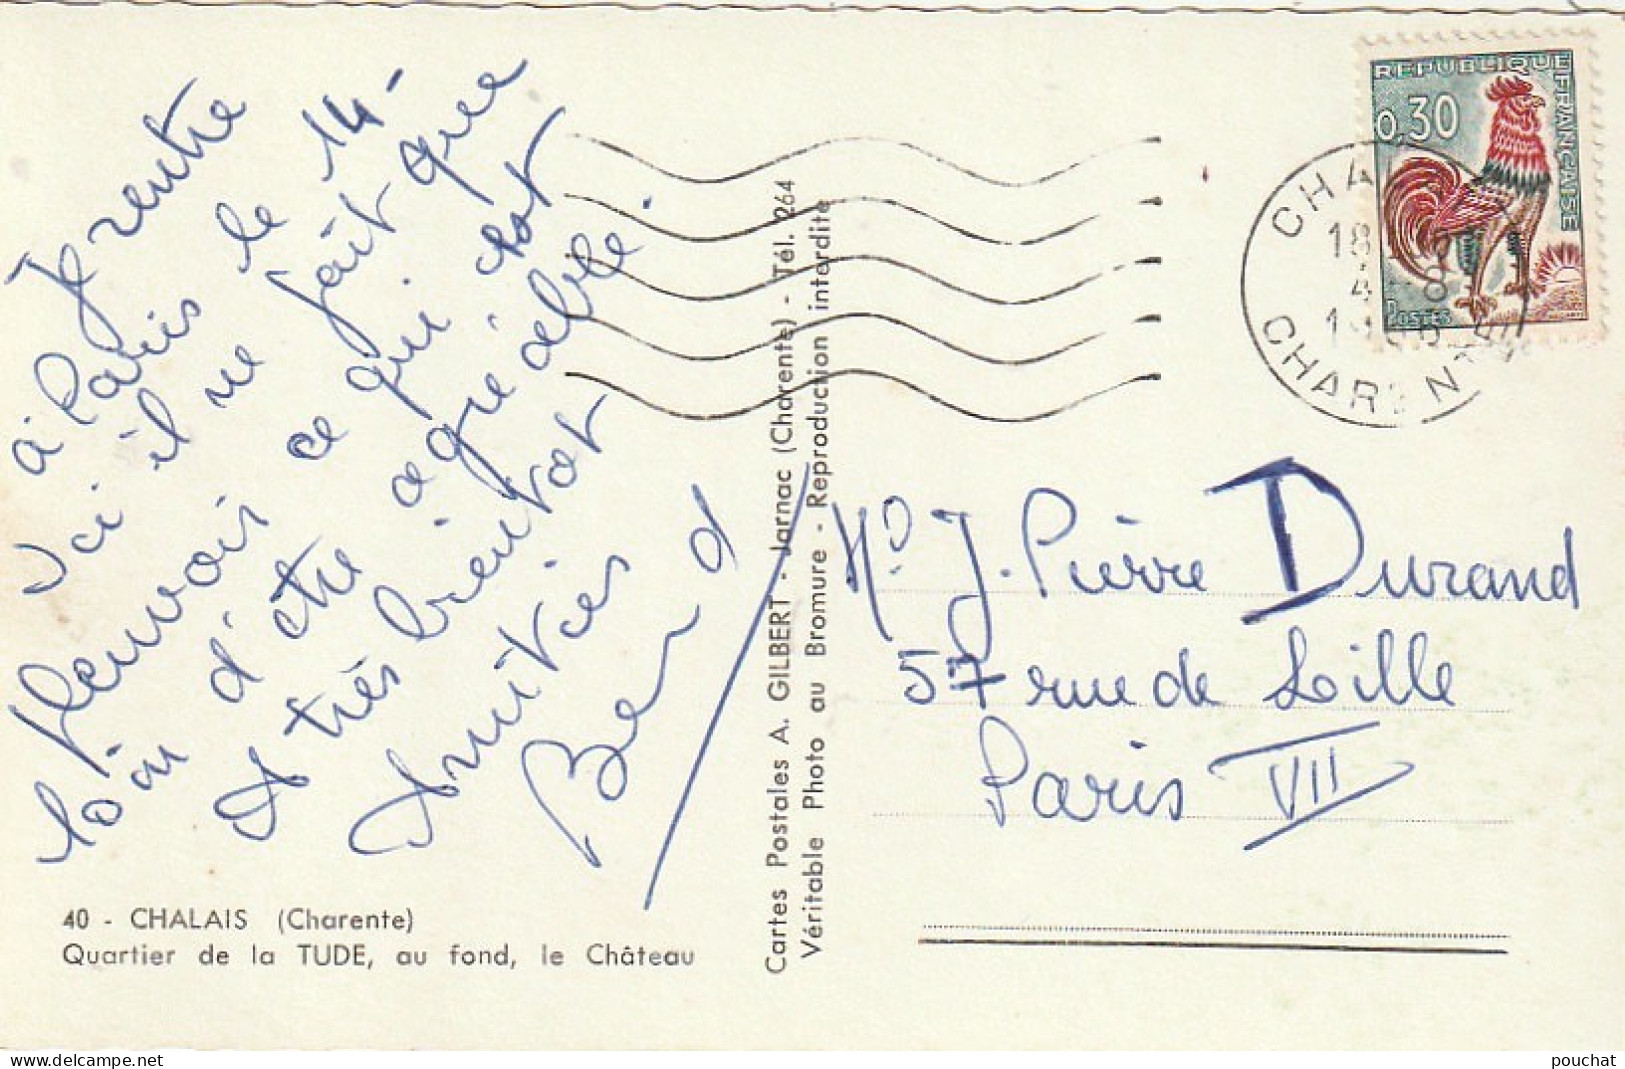 Je rentre
à Paris le 14-
Ici il ne fait que
pleuvoir ce qui est
loin d'être agréable.
A très bientôt
Amitiés
40 - CHALAIS (Charente)
Quartier de la TUDE, au fond, le Château
Cartes Postales A. GILBERT - Jarnac (Charente) - Tél. 264
Véritable Photo au Bromure - Reproduction interdite
REPUBLIQUE FRANÇAISE
0,30
POSTES
CHA
18
4
CHARENTE
Mr J. Pierre Durand
57 rue de Lille
Paris VII
pouchat